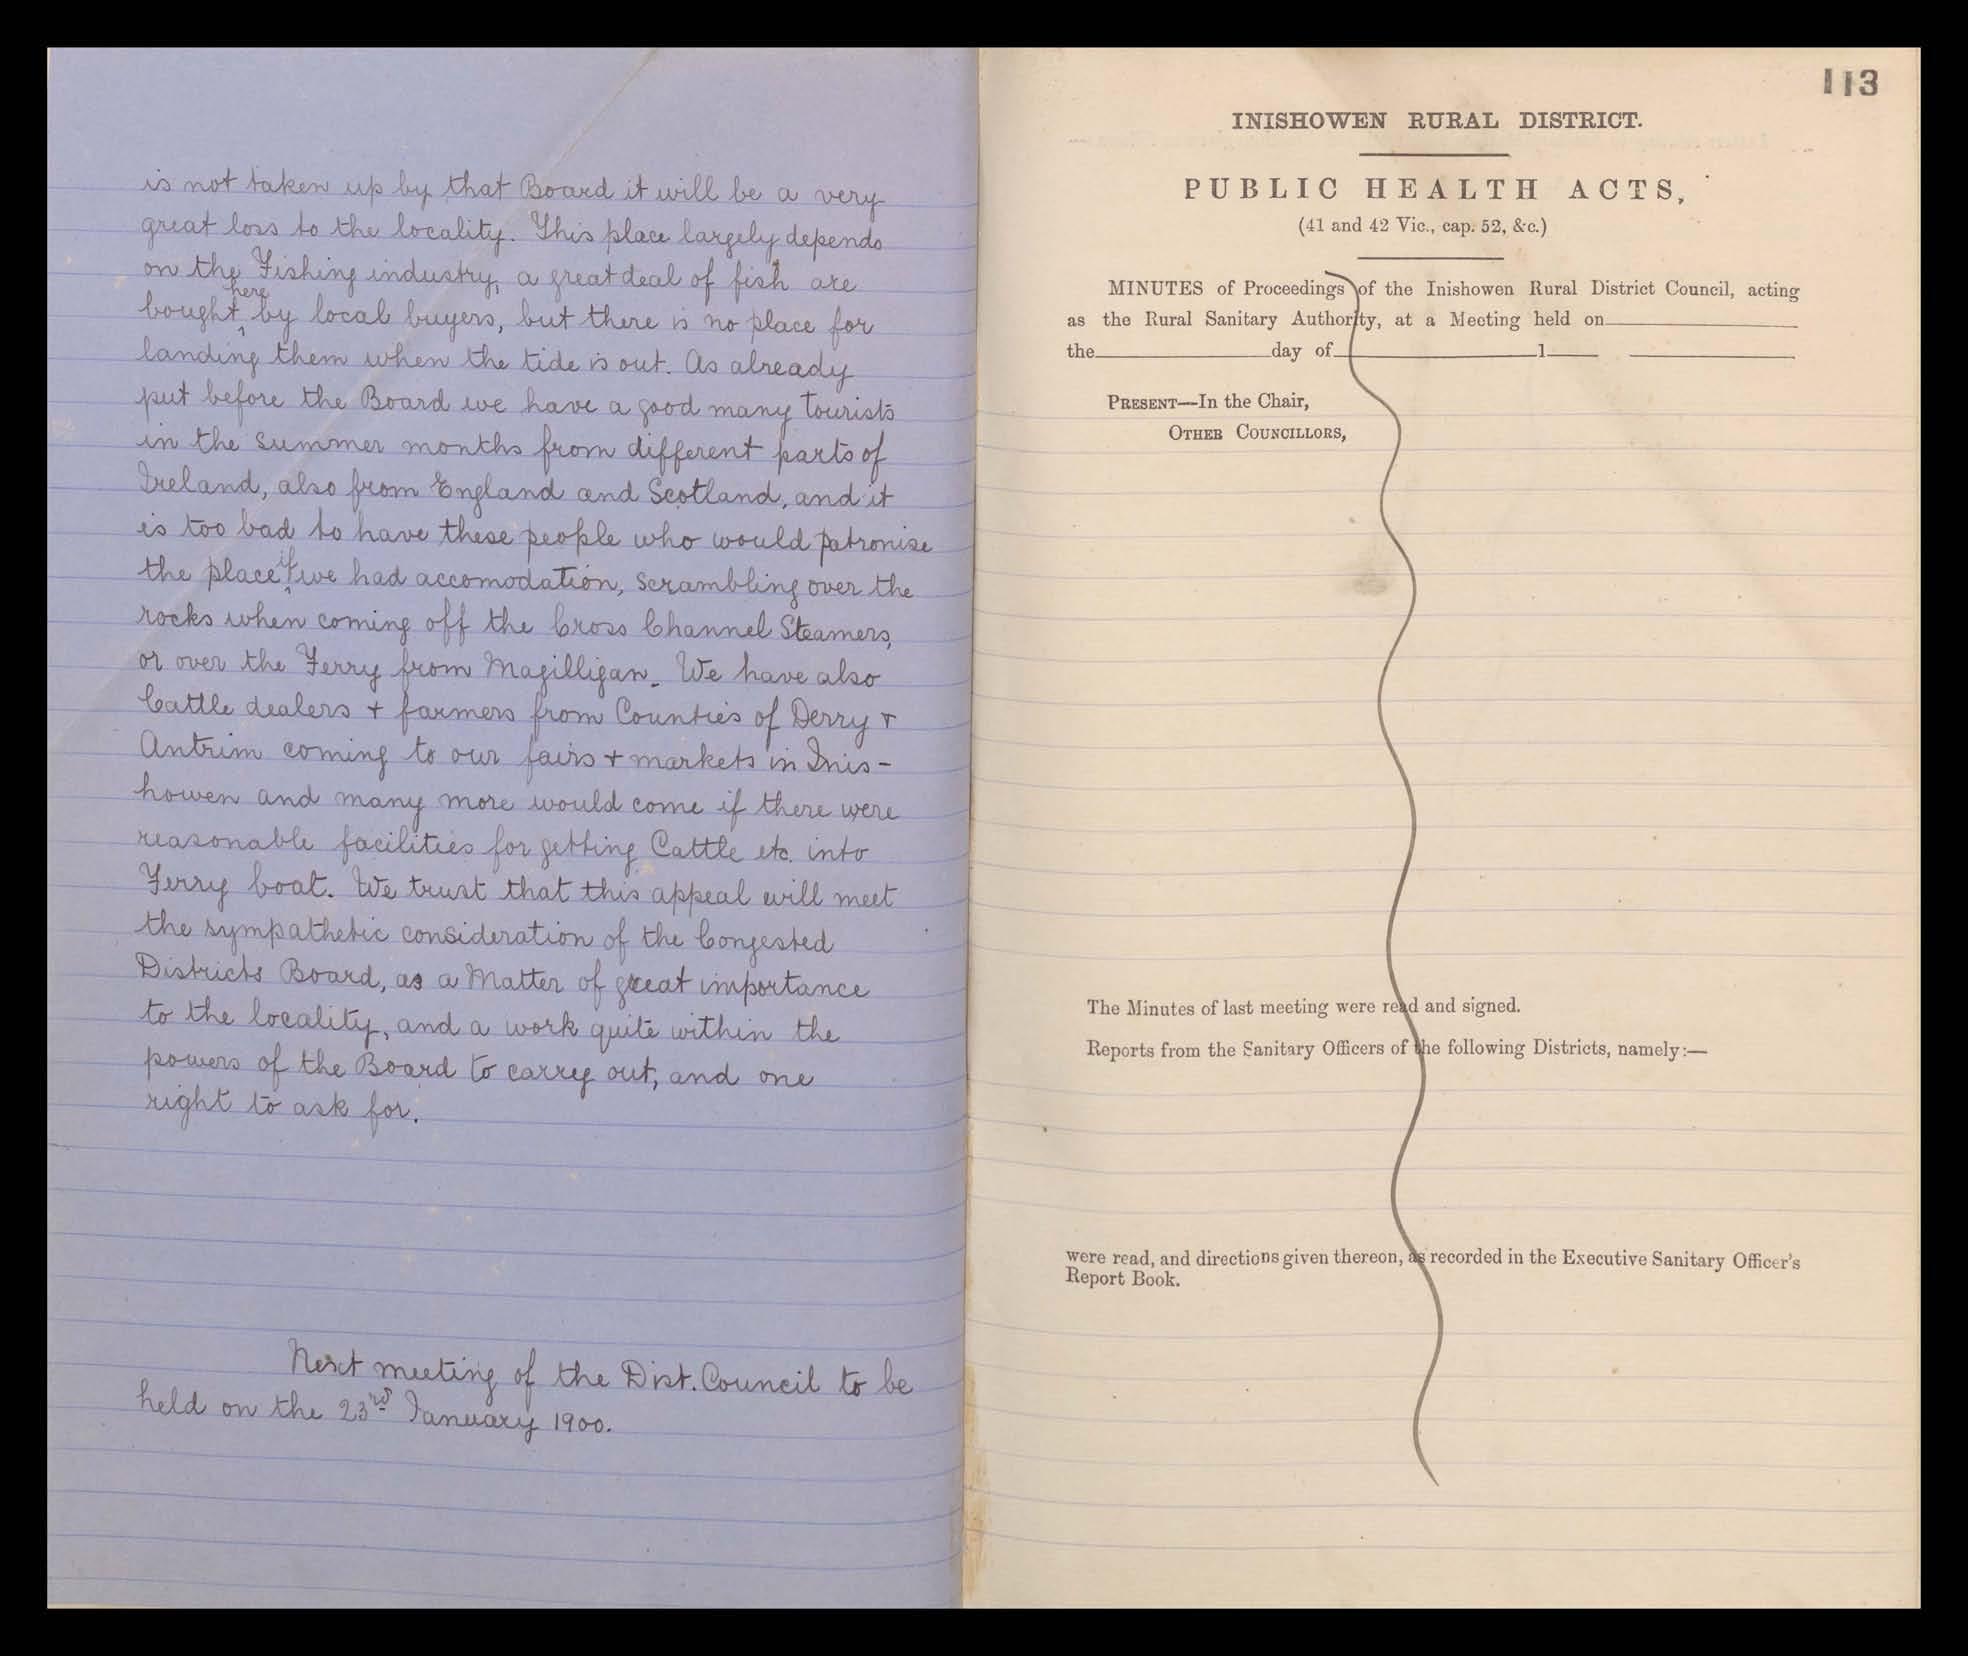 is not taken up by that Board it will be a very
great loss to the locality. This place largely depends
on the Fishing industry, a great deal of fish are
bought here by local buyers, but there is no place for
landing them when the tide is out. As already
put before the Board we have a good many tourists
in the summer months from different parts of
Ireland, also from England and Scotland, and it
is too bad to have these people who would patronise
the place if we had accomodation, scrambling over the
rocks when coming off the Cross Channel Steamers,
or over the Ferry from Magilligan. We have also
Cattle dealers + farmers from Counties of Derry +
Antrim coming to our fairs + markets in Inis-
howen and many more would come if there were
reasonable facilities for getting Cattle etc. into
Ferry boat. We trust that this appeal will meet
the sympathetic consideration of the Congested
Districts Board, as a Matter of great importance
to the locality, and a work quite within the
powers of the Board to carry out, and one
right to ask for.
Next meeting of the Dist. Council to be
held on the 23rd January 1900.
113
INISHOWEN RURAL DISTRICT.
PUBLIC HEALTH ACTS,
(41 and 42 Vic., cap. 52, &c.)
MINUTES of Proceedings of the Inishowen Rural District Council, acting
as the Rural Sanitary Authority, at a Meeting held on
the day of 1
PRESENT—In the Chair,
OTHER COUNCILLORS,
The Minutes of last meeting were read and signed.
Reports from the Sanitary Officers of the following Districts, namely:—
were read, and directions given thereon, as recorded in the Executive Sanitary Officer's
Report Book.